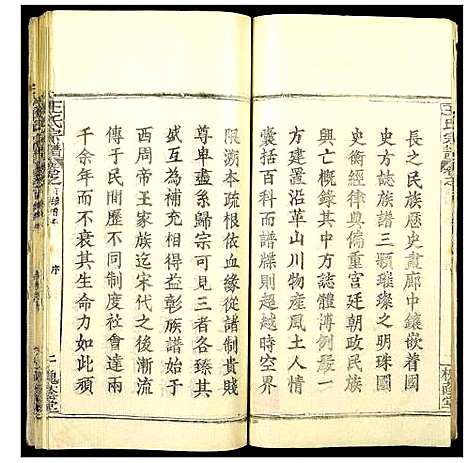 長之民族歷史畫廊中鑲嵌着
史方誌族譜三顆璀璨之明珠國
史術經律典偏重宮廷朝政民族
興亡概錄其中方誌體博例嚴一
方建置沿革山川物產風土人情
囊括百科而譜牒則超越時空界
限溯本疏根依血緣從譜制貴賤
尊卑盡系歸宗可見三者各臻
其極爲補充相得益彰族譜始于
西周帝王家族迄宋代之後漸流
傳于民間歷不同制度社會達兩
千余年而不衰其生命力如此頑
王氏宗譜
序
二
槐蔭堂